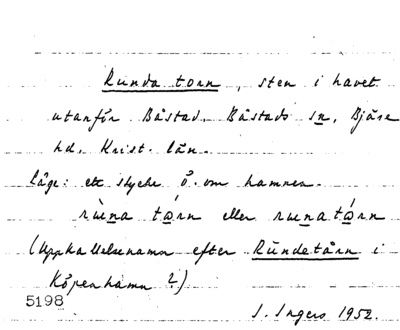 Runda torn, sten i havet
utanför Båstad, Båstads sn, Bjäre
hd, Krist. län.
Läge: ett stycke ö. om hamnen.
rùⁱna tɷrn eller ruⁱnatɷ́rn
(Uppkallelsenamn efter Rundetårn i
Köpenhamn?)
5198
I. Ingers 1952.